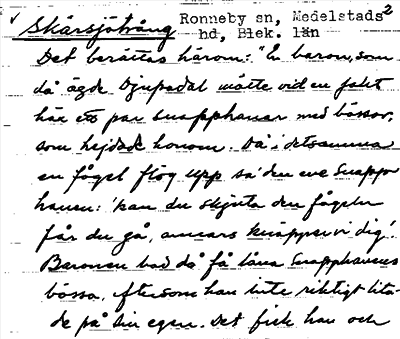 √ Skärsjötvång Ronneby sn, Medelstads 2
hd, Blek. län
Det berättas härom: "En baron, som
då ägde Djupadal mötte vid en jakt
här ett par snapphanar med bössor,
som hejdade honom. Då i detsamma
en fågel flög upp sa den ene snapp-
hanen: 'kan du skjuta den fågeln
får du gå, annars knäpper vi dig'.
Baronen bad då få låna snapphanens
bössa, eftersom han inte riktigt lita-
de på sin egen. Det fick han och